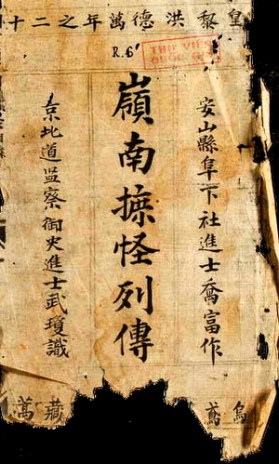 皇黎洪德萬年之二十
R.6
THƯ VIỆN
QUỐC
安山縣阜下社進士喬富作
嶺南摭怪列傳
京北道监察御史進士武瓊識
藏
烏